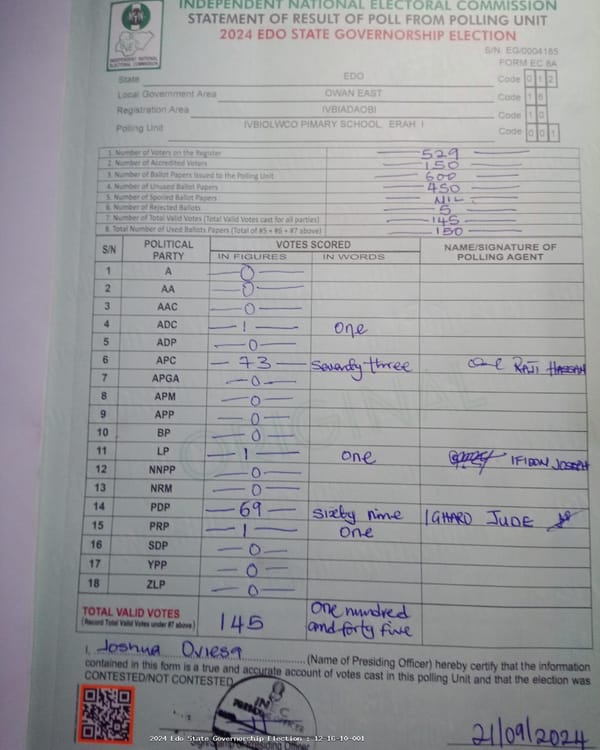 INDEPENDENT NATIONAL ELECTORAL COMMISSION
STATEMENT OF RESULT OF POLL FROM POLLING UNIT
2024 EDO STATE GOVERNORSHIP ELECTION
INEC
INDEPENDENT NATIONAL
ELECTORAL COMMISSION
S/N. EG/0004185
FORM EC 8A
State EDO Code 0 1 2
Local Government Area OWAN EAST Code 1 6
Registration Area IVBIADAOBI Code 1 0
Polling Unit IVBIOLWCO PIMARY SCHOOL, ERAH I Code 0 0 1
1. Number of Voters on the Register 529
2. Number of Accredited Voters 150
3. Number of Ballot Papers Issued to the Polling Unit 600
4. Number of Unused Ballot Papers 450
5. Number of Spoiled Ballot Papers NIL
6. Number of Rejected Ballots 5
7. Number of Total Valid Votes (Total Valid Votes cast for all parties) 145
8. Total Number of Used Ballots Papers (Total of #5 + #6 + #7 above) 150
S/N POLITICAL PARTY VOTES SCORED NAME/SIGNATURE OF POLLING AGENT
IN FIGURES IN WORDS
1 A 0
2 AA 0
3 AAC 0
4 ADC 1 one
5 ADP 0
6 APC 73 seventy three RAJI HASSAN
7 APGA 0
8 APM 0
9 APP 0
10 BP 0
11 LP 1 one IFIDON JOSEPH
12 NNPP 0
13 NRM 0
14 PDP 69 sixty nine IGHARO JUDE
15 PRP 1 one
16 SDP 0
17 YPP 0
18 ZLP 0
ORIGINAL
TOTAL VALID VOTES 145 One hundred
(Record Total Valid Votes under #7 above) and forty five
I, Joshua Oviesa (Name of Presiding Officer) hereby certify that the information
contained in this form is a true and accurate account of votes cast in this polling Unit and that the election was
CONTESTED/NOT CONTESTED
INEC
Presiding Officer
21/09/2024
2024 Edo State Governorship Election : 12-16-10-001